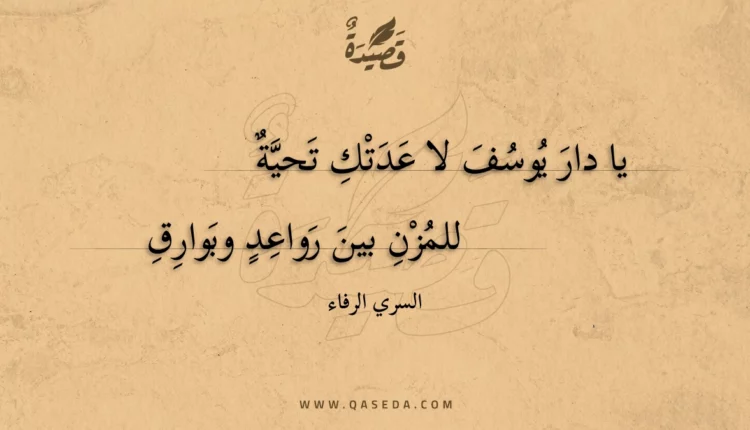 قَصِيْدَةٌ
يا دارَ يُوسُفَ لا عَدَتْكِ تَحيَّةٌ
للمُزْنِ بينَ رَواعِدٍ وبَوارِقِ
السري الرفاء
WWW.QASEDA.COM